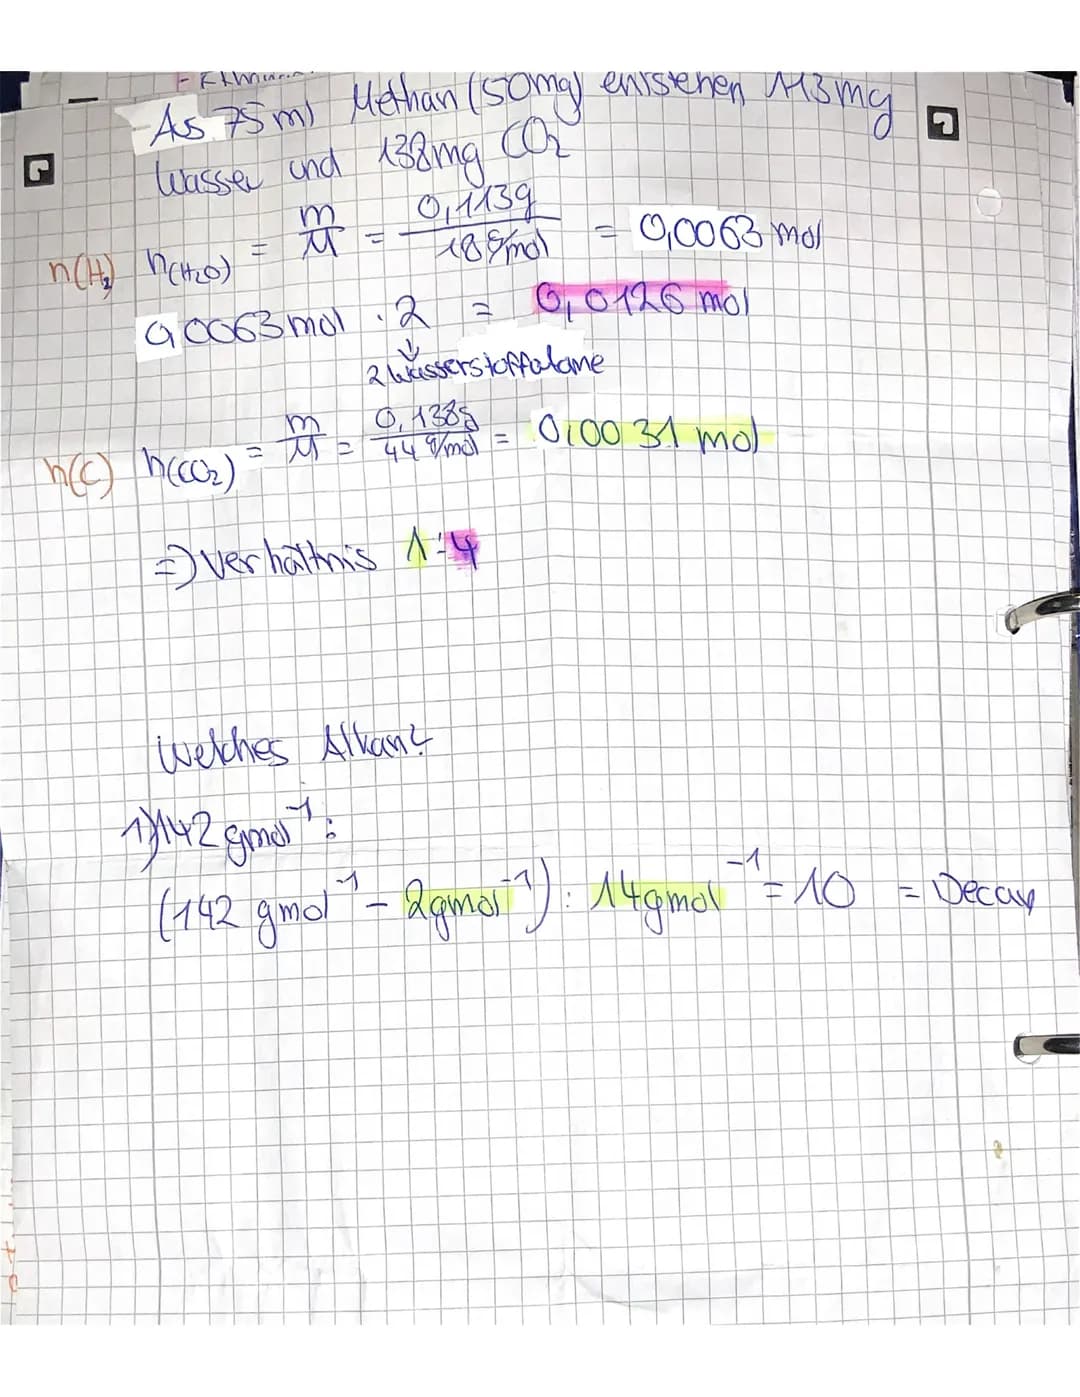 As 75ml Methan (50mg) entstehen 113mg
Wasser und 138mg CO₂
n(H₂) n(H₂O) = m/M = 0,1139/18 g/mol = 0,0063 mol
0,0063 mol · 2 = 0,0126 mol
↓
2 Wasserstoffatome
n(C) n(CO₂) = m/M = 0,138g/44 g/mol = 0,0031 mol
=) Verhältnis 1:4
Welches Alkan?
1) 142 gmol⁻¹:
(142 gmol⁻¹ - 2gmol⁻¹) : 14gmol⁻¹ = 10 = Decan